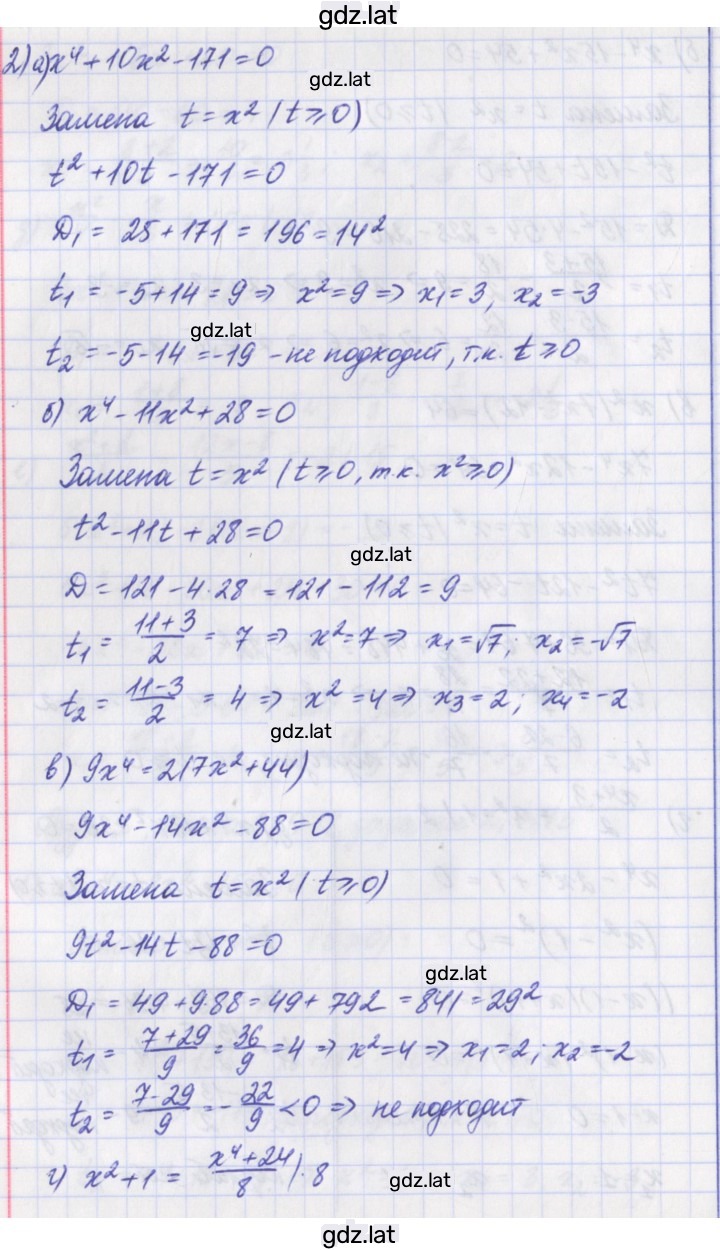 gdz.lat
2) а) x⁴ + 10x² - 171 = 0
gdz.lat
Замена t = x² (t ⩾ 0)
t² + 10t - 171 = 0
D₁ = 25 + 171 = 196 = 14²
t₁ = -5 + 14 = 9 => x² = 9 => x₁ = 3, x₂ = -3
gdz.lat
t₂ = -5 - 14 = -19 - не подходит, т.к. t ⩾ 0
б) x⁴ - 11x² + 28 = 0
Замена t = x² (t ⩾ 0, т.к. x² ⩾ 0)
t² - 11t + 28 = 0
gdz.lat
D = 121 - 4·28 = 121 - 112 = 9
t₁ = (11+3)/2 = 7 => x² = 7 => x₁ = √7; x₂ = -√7
t₂ = (11-3)/2 = 4 => x² = 4 => x₃ = 2; x₄ = -2
gdz.lat
в) 9x⁴ = 2(7x² + 44)
9x⁴ - 14x² - 88 = 0
Замена t = x² (t ⩾ 0)
9t² - 14t - 88 = 0
gdz.lat
D₁ = 49 + 9·88 = 49 + 792 = 841 = 29²
t₁ = (7+29)/9 = 36/9 = 4 => x² = 4 => x₁ = 2; x₂ = -2
t₂ = (7-29)/9 = -22/9 < 0 => не подходит
г) x² + 1 = (x⁴ + 24)/8 |·8
gdz.lat
gdz.lat